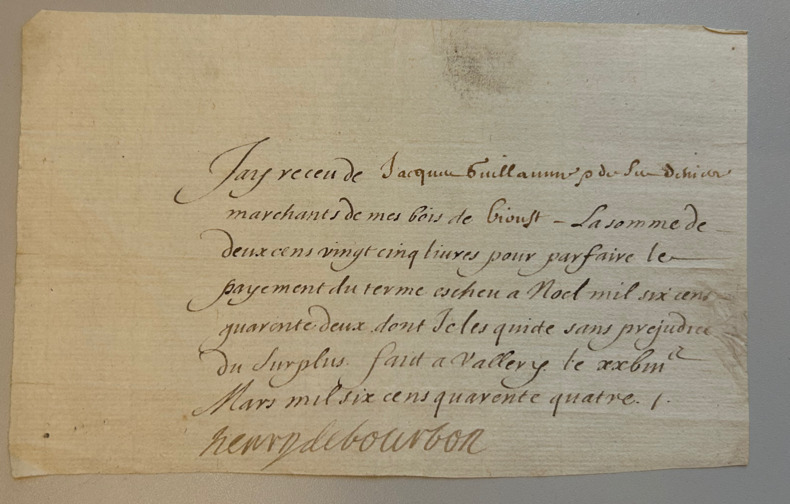 Jay receu de Jacques Guillaume
marchants de mes bois de - La somme de
deux cens vingt cinq livres pour parfaire le
payement du terme escheu a Noel mil six cens
quarente deux dont Je les quicte sans prejudice
du Surplus. faict a Vallery le
Mars mil six cens quarente quatre. /.
henry de bourbon